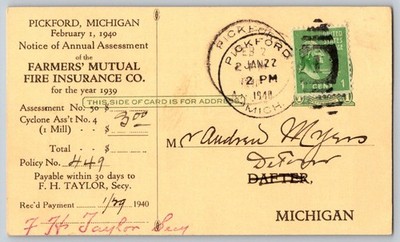 PICKFORD, MICHIGAN
February 1, 1940
Notice of Annual Assessment
of the
FARMERS' MUTUAL
FIRE INSURANCE CO.
for the year 1939
THIS SIDE OF CARD IS FOR ADDRESS
Assessment No. 50 $
Cyclone Ass't No. 4
(1 Mill) $ 3.00
Policy No. 449
Payable within 30 days to
F. H. TAYLOR, Secy.
Rec'd Payment 1/29 1940
F H Taylor Secy
PICKFORD
PICKFORD
JAN 22
2 PM
1940
MICH.
UNITED STATES POSTAGE
1 CENT 1
Mr Andrew Myers
DeTour
DAFTER,
MICHIGAN